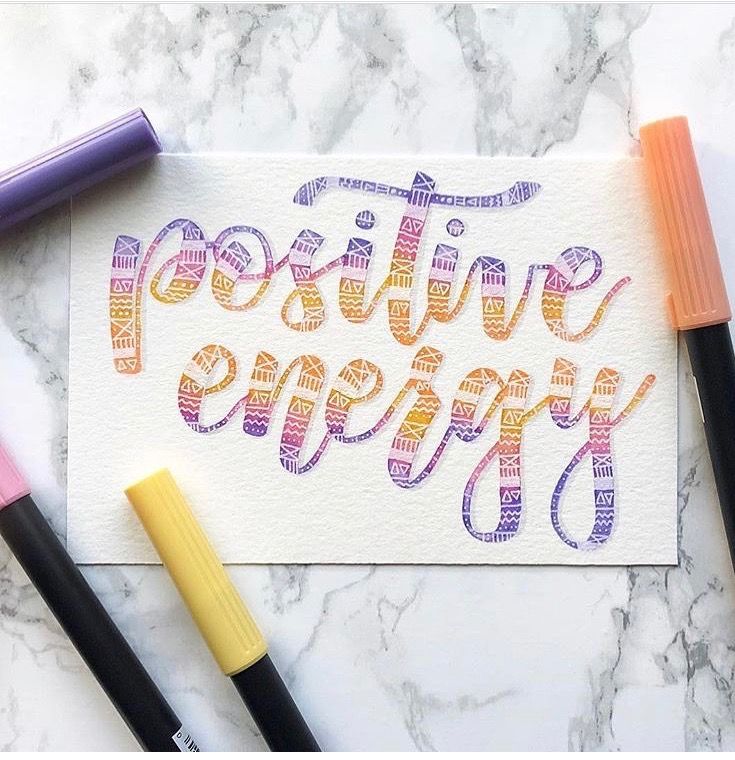 positive
energy